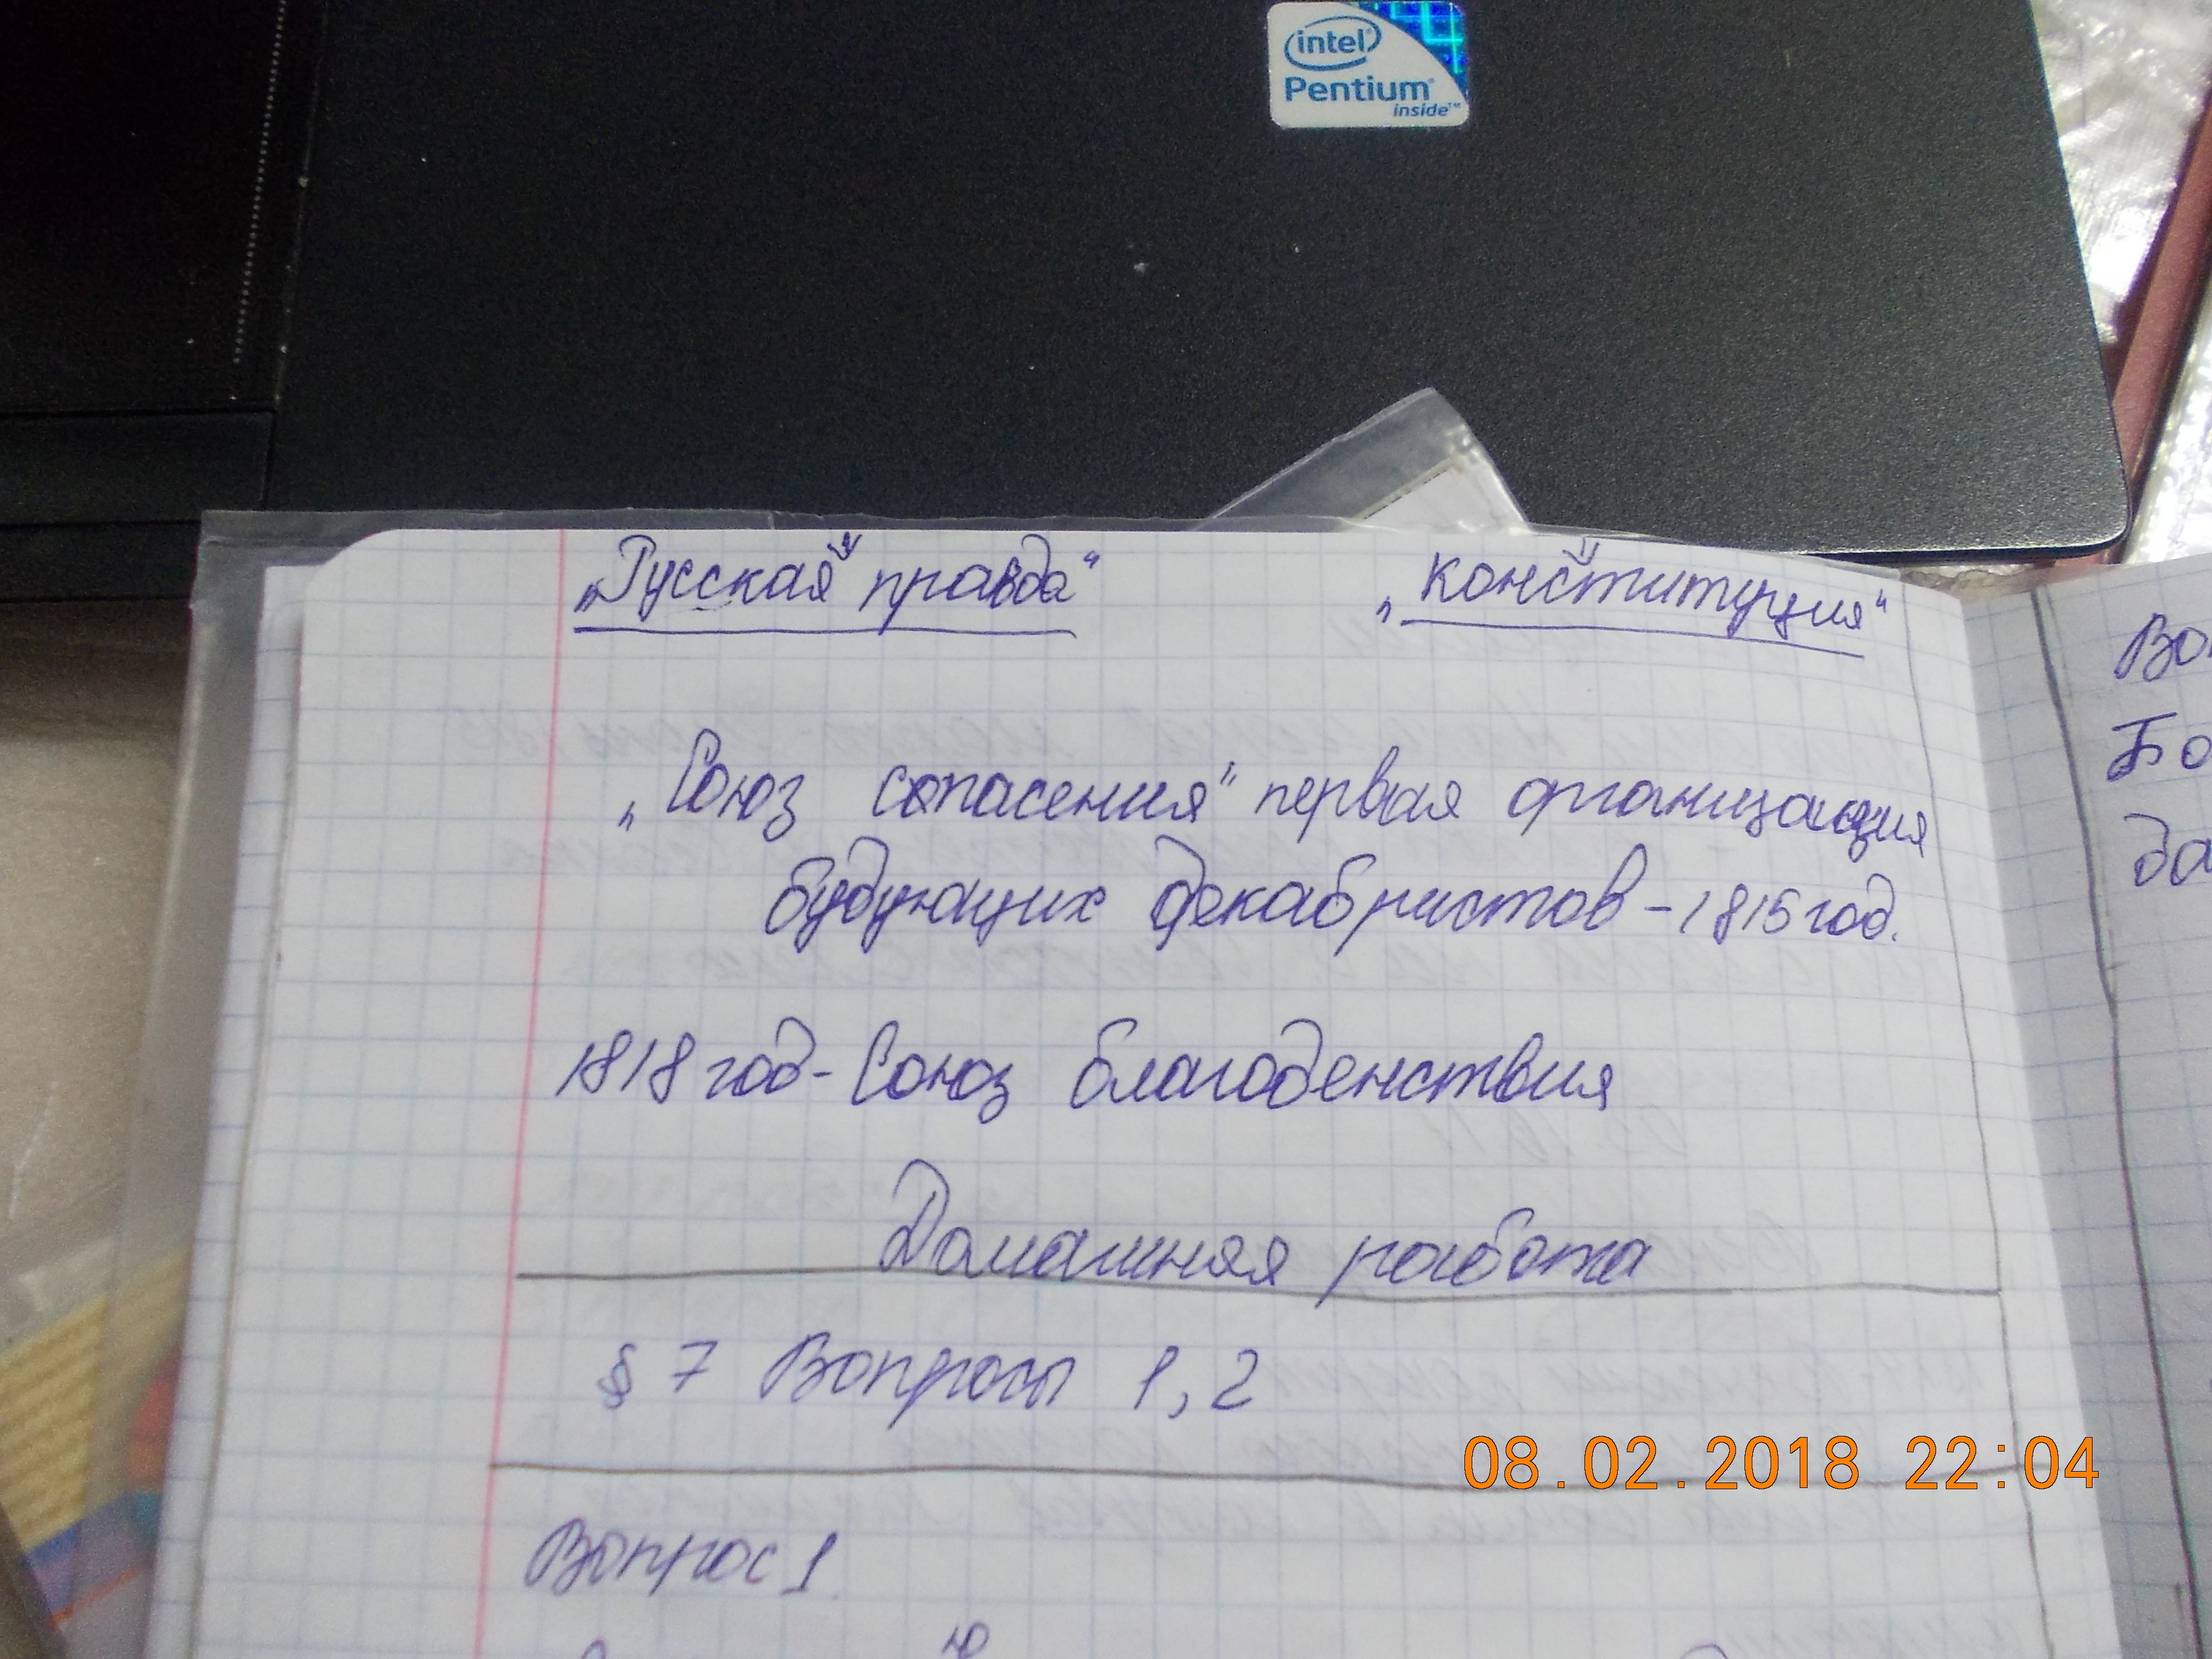 intel
Pentium
inside™
„Русская" правда" „конституция"
„Союз сопасения" первая организация
будующих декабристов - 1815 год.
1818 год - Союз благоденствия
Домашняя работа
§ 7 Вопросы 1, 2
Вопрос 1.
Бо
да
08.02.2018 22:04